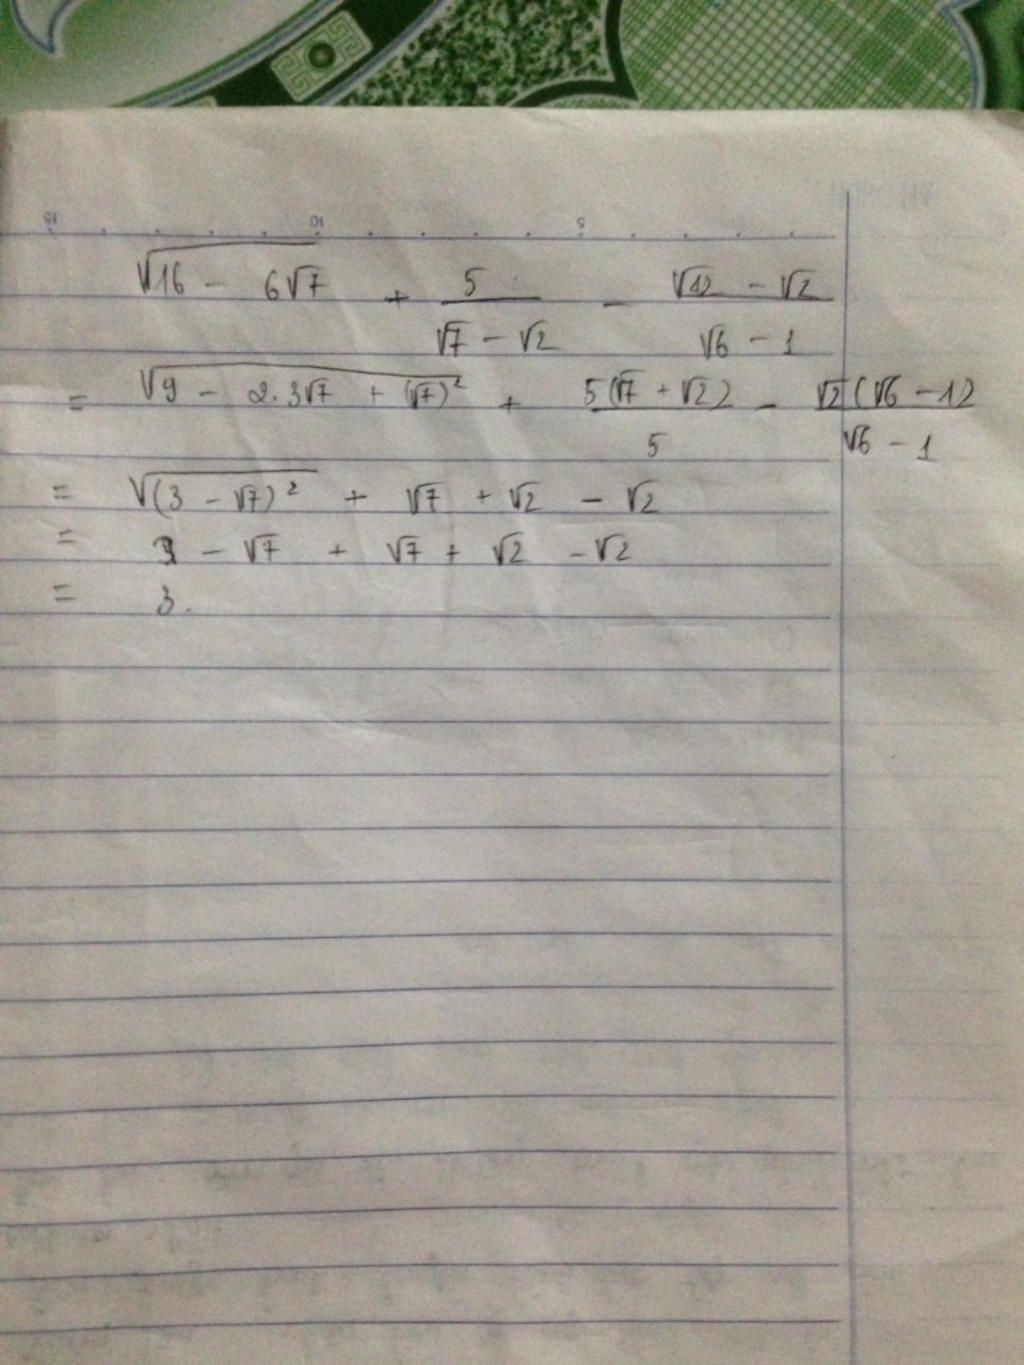 15 10 5
√16 - 6√7 + 5/(√7 - √2) - (√12 - √2)/(√6 - 1)
= √9 - 2.3√7 + (√7)² + 5(√7 + √2)/5 - √2(√6 - 1)/(√6 - 1)
= √(3 - √7)² + √7 + √2 - √2
= 3 - √7 + √7 + √2 - √2
= 3.